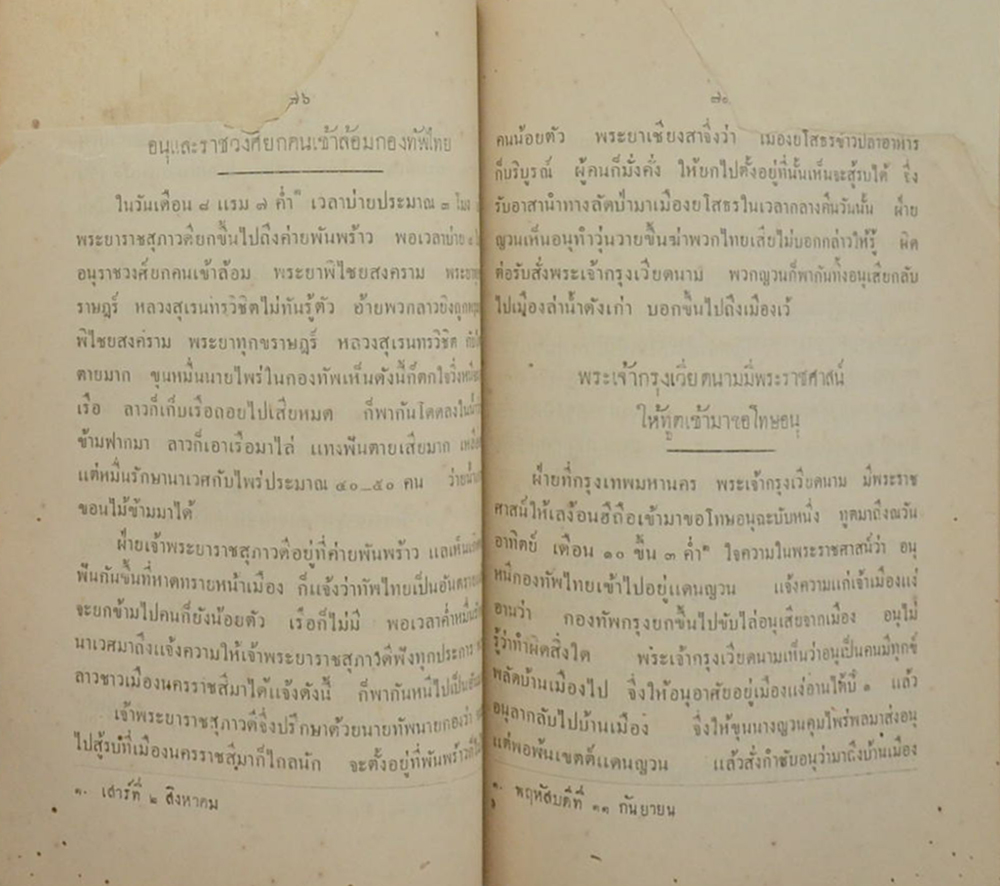 ๗๖
อนุและราชวงศ์ยกคนเข้าล้อมกองทัพไทย
ในวันเดือน ๘ แรม ๗ ค่ำ๑ เวลาบ่ายประมาณ ๓ โมง
พระยาราชสุภาวดียกขึ้นไปถึงค่ายพันพร้าว พอเวลาบ่าย
อนุราชวงศ์ยกคนเข้าล้อม พระยาพิไชยสงคราม
ราษฎร์ หลวงสุเรนทรวิชิตไม่ทันรู้ตัว อ้ายพวกลาวยิงถูก
พิไชยสงคราม พระยาทุกขราษฎร์ หลวงสุเรนทรวิชิต
ตายมาก ขุนหมื่นนายไพร่ในกองทัพเห็นดังนี้ก็ตกใจวิ่ง
เรือ ลาวก็เก็บเรือถอยไปเสียหมด ก็พากันโดดลงใน
ข้ามฟากมา ลาวก็เอาเรือมาไล่ แทงฟันตายเสียมาก
แต่หมื่นรักษานาเวศกับไพร่ประมาณ ๔๐_๕๐ คน
ขอนไม้ข้ามมาได้
ฝ่ายเจ้าพระยาราชสุภาวดีอยู่ที่ค่ายพันพร้าว แลเห็น
ฟันกันขึ้นที่หาดทรายหน้าเมือง ก็แจ้งว่าทัพไทยเป็นอันตราย
จะยกข้ามไปคนก็ยังน้อยตัว เรือก็ไม่มี พอเวลาค่ำหมื่น
นาเวศมาถึงแจ้งความให้เจ้าพระยาราชสุภาวดีฟังทุกประการ
ลาวชาวเมืองนครราชสีมาได้แจ้งดังนี้ ก็พากันหนีไปเป็น
เจ้าพระยาราชสุภาวดีจึงปรึกษาด้วยนายทัพนายกองว่า
ไปสู้รบที่เมืองนครราชสีมาก็ไกลนัก จะตั้งอยู่ที่พันพร้าว
๑. เสาร์ที่ ๒ สิงหาคม
คนน้อยตัว พระยาเชียงสาจึงว่า เมืองยโสธรข้าวปลาอาหาร
ก็บริบูรณ์ ผู้คนก็มั่งคั่ง ให้ยกไปตั้งอยู่ที่นั้นเห็นจะสู้รบได้ จึง
รับอาสานำทางลัดป่ามาเมืองยโสธรในเวลากลางคืนวันนั้น ฝ่าย
ญวนเห็นอนุทำวุ่นวายขึ้นฆ่าพวกไทยเสียไม่บอกกล่าวให้รู้ ผิด
ต่อรับสั่งพระเจ้ากรุงเวียดนาม พวกญวนก็พากันทิ้งอนุเสียกลับ
ไปเมืองล่าน้ำดังเก่า บอกขึ้นไปถึงเมืองเว้
พระเจ้ากรุงเวียดนามมีพระราชศาสน์
ให้ทูตเข้ามาขอโทษอนุ
ฝ่ายที่กรุงเทพมหานคร พระเจ้ากรุงเวียดนาม มีพระราช
ศาสน์ให้เลงัอนฮีถือเข้ามาขอโทษอนุฉะบับหนึ่ง ทูตมาถึงณวัน
อาทิตย์ เดือน ๑๐ ขึ้น ๓ ค่ำ๑ ใจความในพระราชศาสน์ว่า อนุ
หนีกองทัพไทยเข้าไปอยู่แดนญวน แจ้งความแก่เจ้าเมืองแง่
อานว่า กองทัพกรุงยกขึ้นไปขับไล่อนุเสียจากเมือง อนุไม่
รู้ว่าทำผิดสิ่งใด พระเจ้ากรุงเวียดนามเห็นว่าอนุเป็นคนมีทุกข์
พลัดบ้านเมืองไป จึงให้อนุอาศัยอยู่เมืองแง่อานได้ปี ๑ แล้ว
อนุลากลับไปบ้านเมือง จึงให้ขุนนางญวนคุมไพร่พลมาส่งอนุ
แต่พอพ้นเขตต์แดนญวน แล้วสั่งกำชับอนุว่ามาถึงบ้านเมือง
๑. พฤหัสบดีที่ ๑๑ กันยายน